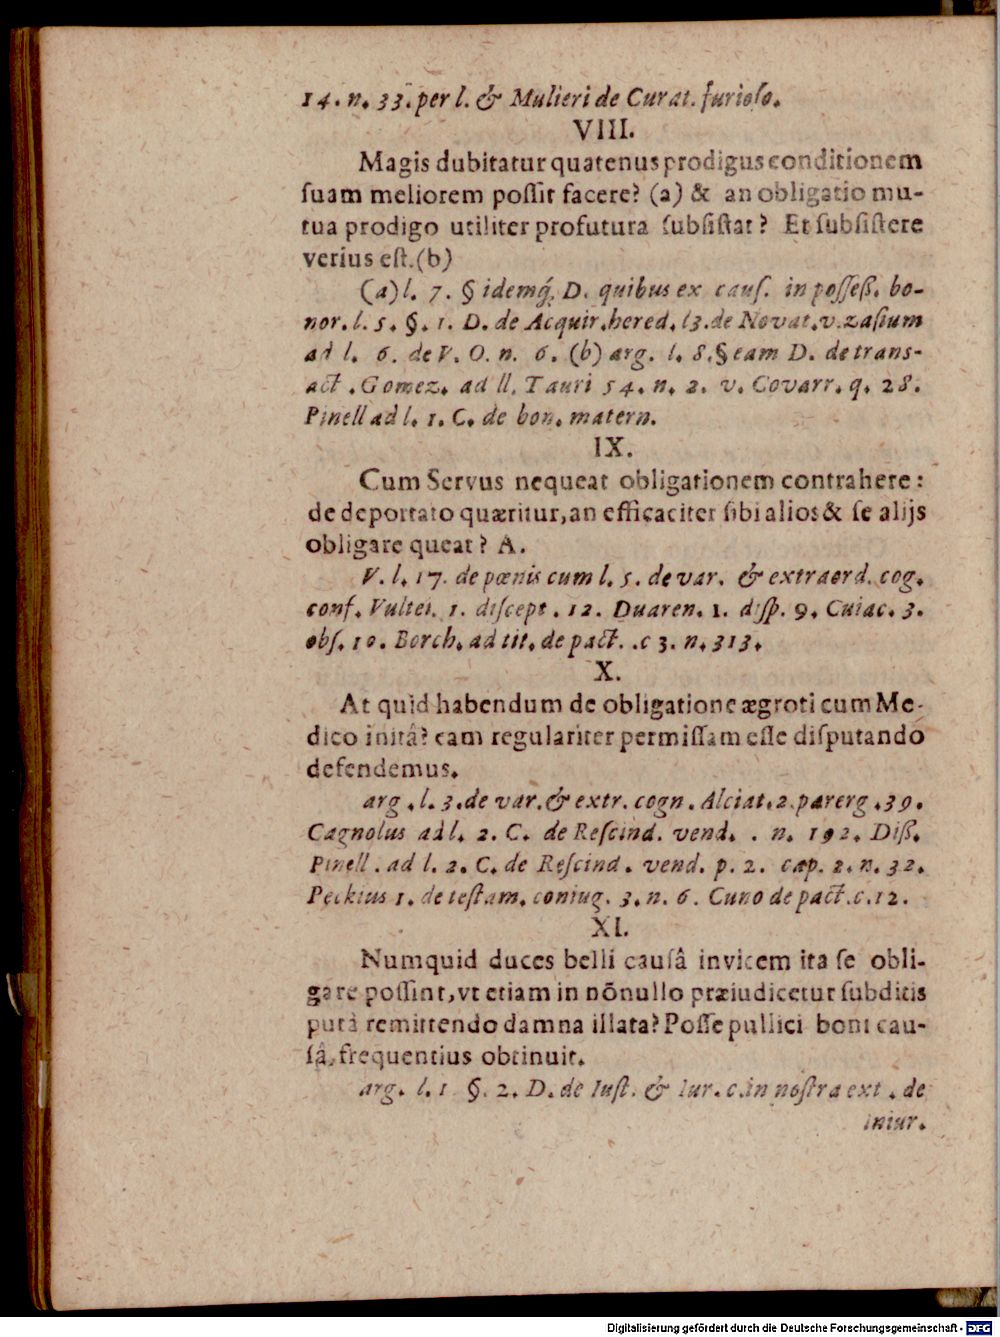 14. n. 33. per l. & Mulieri de Curat. furioſo.
VIII.
Magis dubitatur quatenus prodigus conditionem
ſuam meliorem poſſit facere? (a) & an obligatio mu-
tua prodigo utiliter profutura ſubſiſtat? Et ſubſiſtere
verius eſt. (b)
(a) l. 7. § idemq́, D. quibus ex cauſ. in poſſeß. bo-
nor. l. 5. §. 1. D. de Acquir. hered. l3. de Novat. v. zaſium
ad l. 6. de V. O. n. 6. (b) arg. l. 8. § eam D. de trans-
act. Gomez. ad ll. Tauri 54. n. 2. v. Covarr. q. 28.
Pinell ad l. 1. C. de bon. matern.
IX.
Cum Servus nequeat obligationem contrahere:
de deportato quæritur, an efficaciter ſibi alios & ſe alijs
obligare queat? A.
V. l. 17. de pœnis cum l. 5. de var. & extraord. cog.
conf. Vultei. 1. diſcept. 12. Duaren. 1. diſp. 9. Cuiac. 3.
obſ. 10. Borch. ad tit. de pact. .c 3. n. 313.
X.
At quid habendum de obligatione ægroti cum Me-
dico initâ? eam regulariter permiſſam eſſe diſputando
defendemus.
arg. l. 3. de var. & extr. cogn. Alciat. 2. parerg. 39.
Cagnolus ad l. 2. C. de Reſcind. vend. . n. 192. Diß.
Pinell. ad l. 2. C. de Reſcind. vend. p. 2. cap. 2. n. 32.
Peckius 1. de teſtam. coniug. 3. n. 6. Cuno de pact. c. 12.
XI.
Numquid duces belli cauſâ invicem ita ſe obli-
gare poſſint, vt etiam in nõnullo præiudicetur ſubditis
putà remittendo damna illata? Poſſe pullici boni cau-
ſâ, frequentius obtinuit.
arg. l. 1 §. 2. D. de Iuſt. & Iur. c. in noſtra ext. de
iniur.
Digitalisierung gefördert durch die Deutsche Forschungsgemeinschaft - DFG